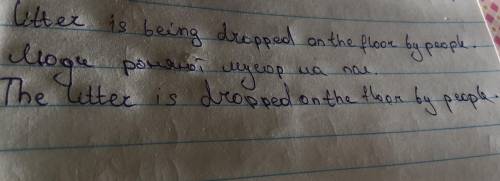 Litter is being dropped on the floor by people.
Люди роняют мусор на пол.
The litter is dropped on the floor by people.